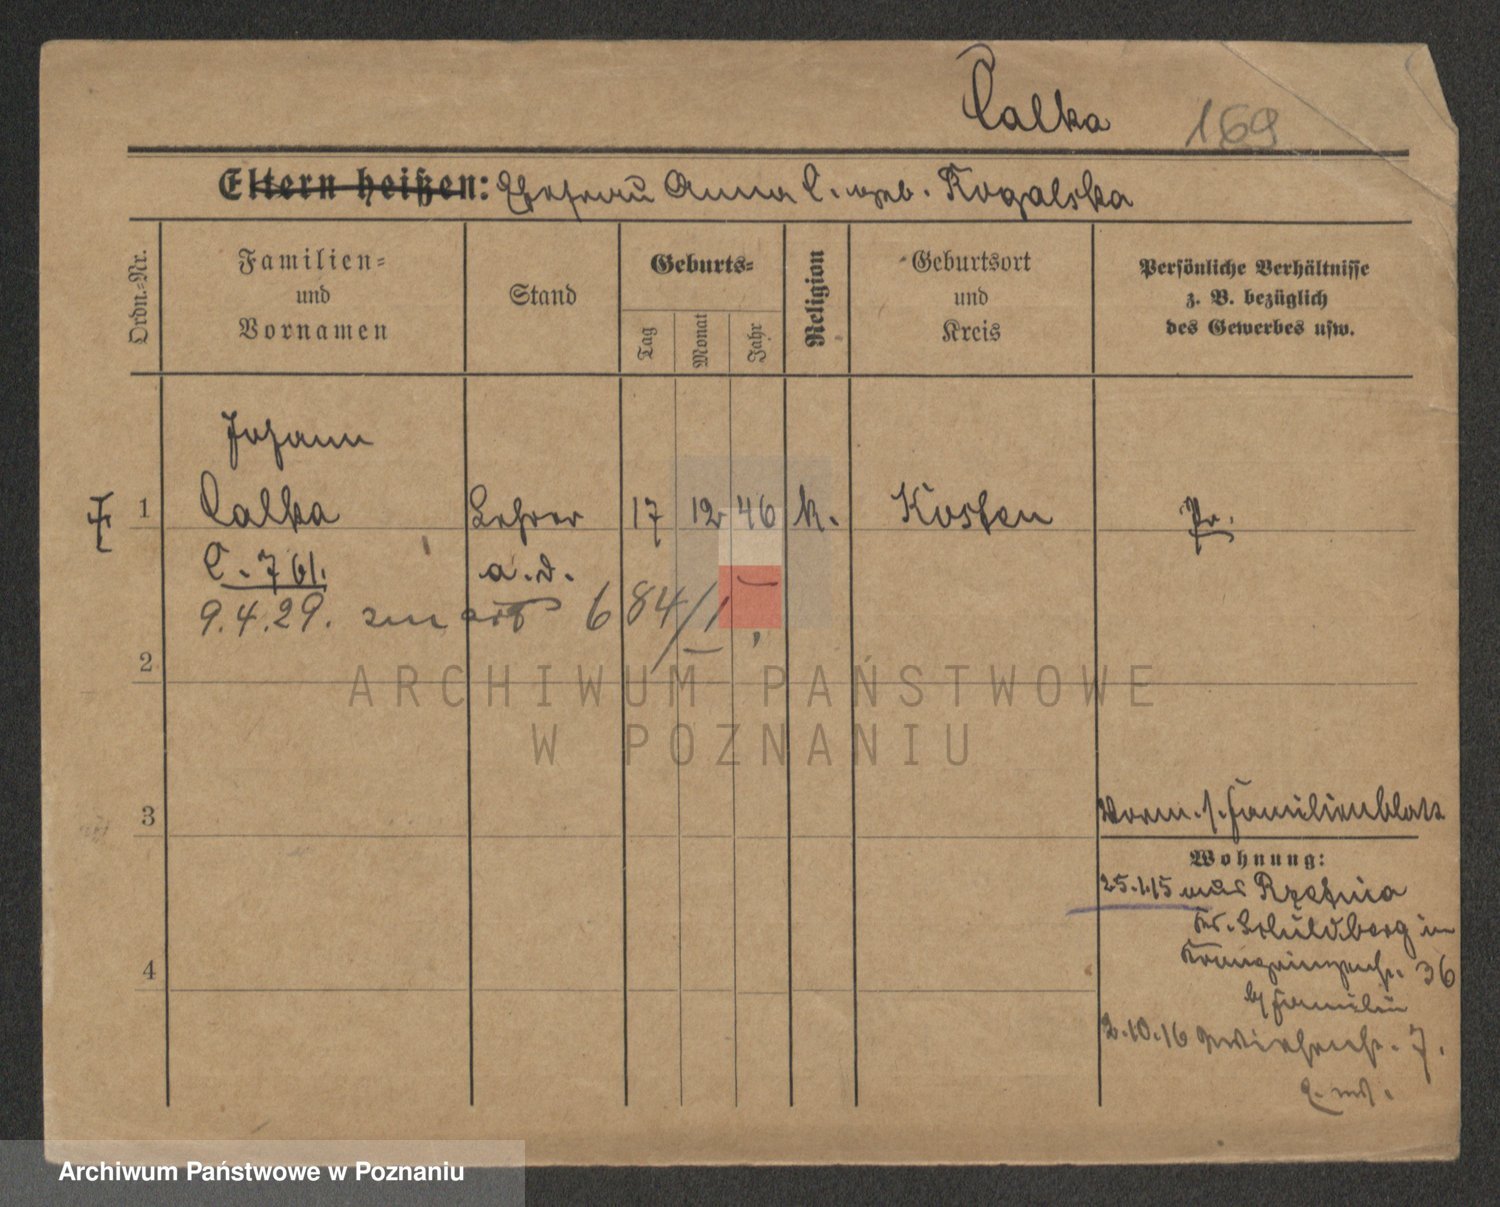 Calka 169
Eltern heißen: Ehefrau Anna C. geb. Rogalska
Ordn.-Nr.
Familien-
und
Vornamen
Stand
Geburts-
Tag
Monat
Jahr
Religion
Geburtsort
und
Kreis
Persönliche Verhältnisse
z. B. bezüglich
des Gewerbes usw.
Johann
1 Calka Lehrer 17 12 46 k. Kosten Pr.
C. 761. a. D.
9.4.29. 684/1
2
ARCHIWUM PAŃSTWOWE
W POZNANIU
3
Vorm. s. Familienblatt
Wohnung:
25.1.15 aus Rzetnia
Kr. Schildberg in
Kronprinzenstr. 36
b/ Familie
4
2.10.16 7.
Archiwum Państwowe w Poznaniu